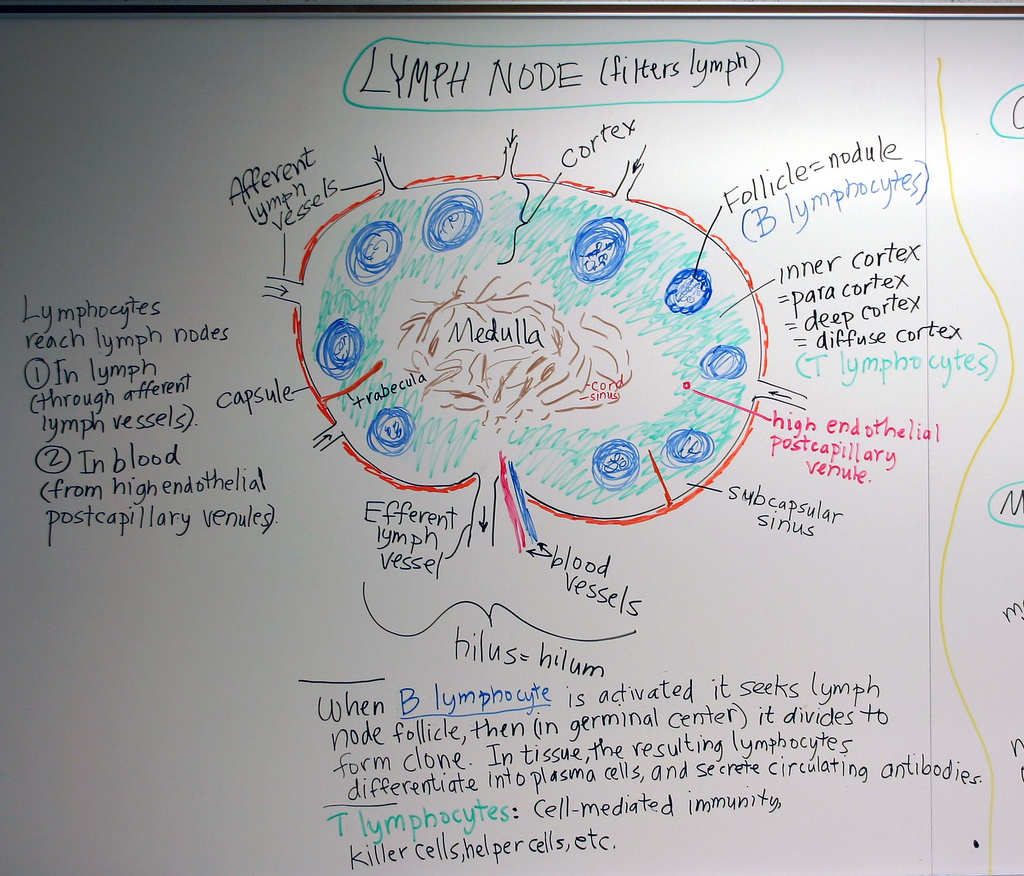 LYMPH NODE (filters lymph)
cortex
Afferent
lymph
vessels
Follicle = nodule
(B lymphocytes)
inner cortex
= para cortex
= deep cortex
= diffuse cortex
(T lymphocytes)
Medulla
Lymphocytes
reach lymph nodes
① In lymph
(through afferent
lymph vessels).
② In blood
(from high endothelial
postcapillary venules).
capsule
trabecula
cord
sinus
high endothelial
postcapillary
venule.
subcapsular
sinus
Efferent
lymph
vessel
blood
vessels
hilus = hilum
When B lymphocyte is activated it seeks lymph
node follicle, then (in germinal center) it divides to
form clone. In tissue, the resulting lymphocytes
differentiate into plasma cells, and secrete circulating antibodies.
T lymphocytes: Cell-mediated immunity,
killer cells, helper cells, etc.